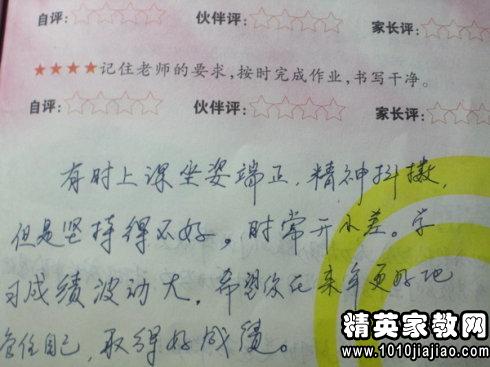 自评:☆☆☆☆☆ 伙伴评:☆☆☆☆☆ 家长评:☆☆
★★★★记住老师的要求,按时完成作业,书写干净。
自评:☆☆☆☆☆ 伙伴评:☆☆☆☆☆ 家长评:☆☆
有时上课坐姿端正,精神抖擞,
但是坚持得不好。时常开小差。学
习成绩波动大。希望你在来年更好地
管住自己,取得好成绩。
精英家教网
www.1010jiajiao.com